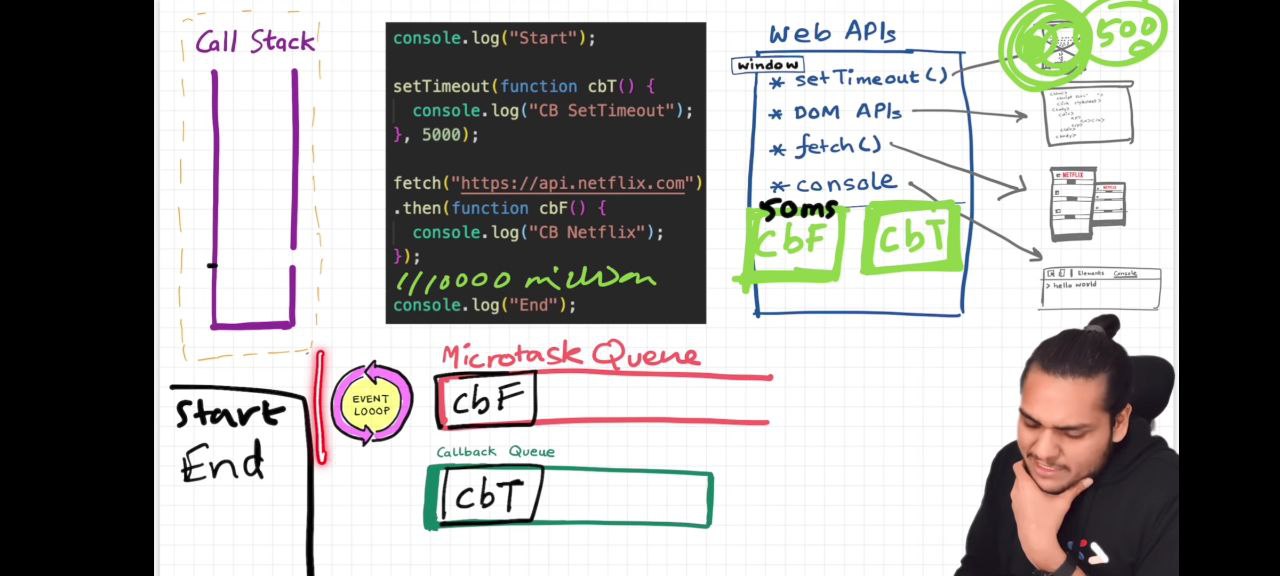 Call Stack
console.log("Start");
setTimeout(function cbT() {
console.log("CB SetTimeout");
}, 5000);
fetch("https://api.netflix.com")
.then(function cbF() {
console.log("CB Netflix");
});
1110000 million
console.log("End");
Web APIs
window
* setTimeout()
* DOM APIs
* fetch()
* console
50ms
cbF
cbT
500
NETFLIX
NETFLIX
Elements Console
> hello world
Microtask Queue
cbF
EVENT
LOOOP
Callback Queue
cbT
Start
End